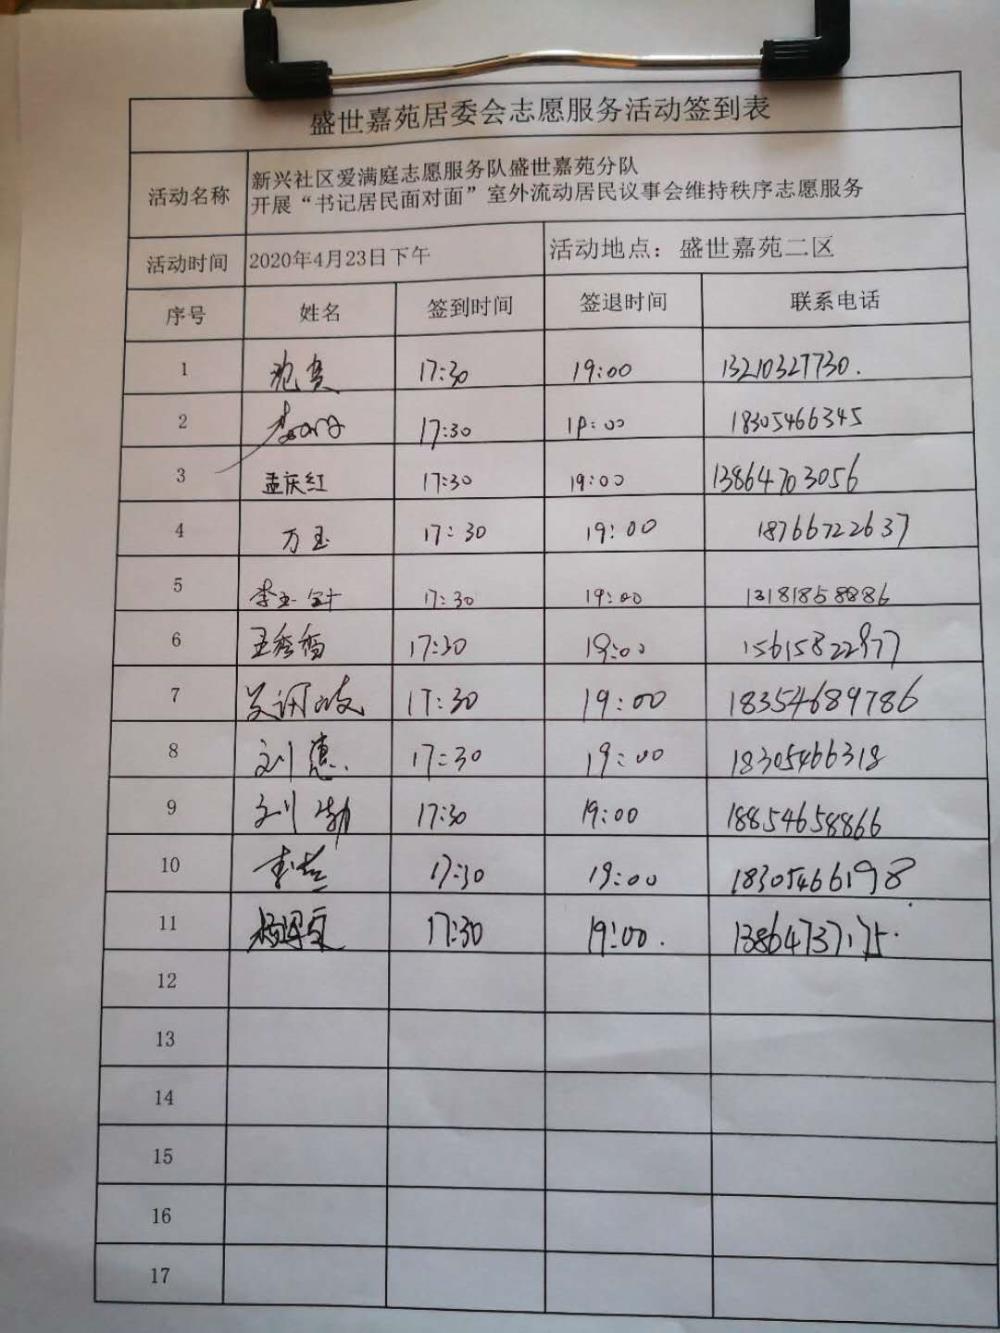 盛世嘉苑居委会志愿服务活动签到表
活动名称 新兴社区爱满庭志愿服务队盛世嘉苑分队
开展“书记居民面对面”室外流动居民议事会维持秩序志愿服务
活动时间 2020年4月23日下午 活动地点：盛世嘉苑二区
序号 姓名 签到时间 签退时间 联系电话
1 17:30 19:00 13210327730.
2 17:30 19:00 18305466345
3 孟庆红 17:30 19:00 13864703056
4 万玉 17:30 19:00 18766722637
5 17:30 19:00 13181858886
6 王秀香 17:30 19:00 15615822977
7 17:30 19:00 18354689786
8 刘惠. 17:30 19:00 18305466318
9 刘勃 17:30 19:00 18854658866
10 17:30 19:00 18305466198
11 17:30 19:00. 13864737175.
12
13
14
15
16
17